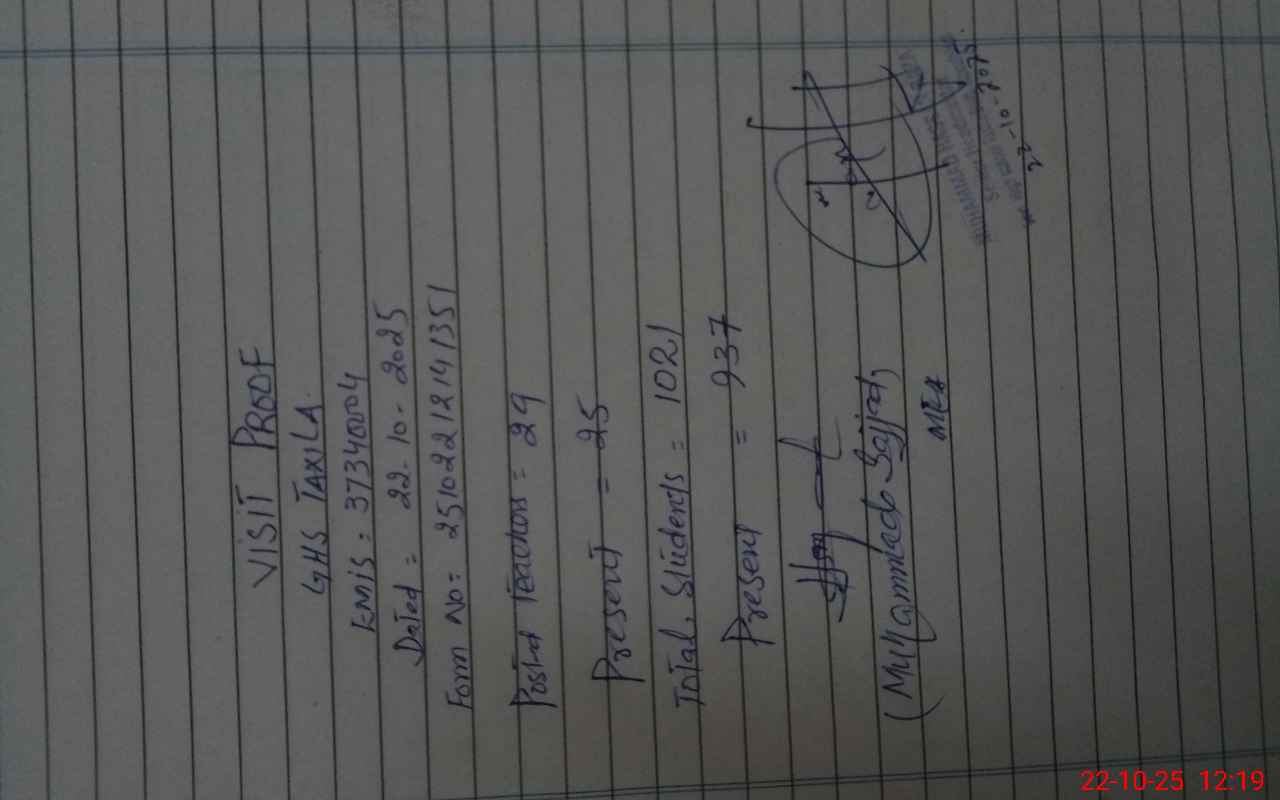 VISIT PROOF
GHS TAXILA.
EMIS : 37340004
Dated = 22-10-2025
Form No = 25102212141351
Posted Teachers = 29
Present = 25
Total Students = 1021
Present = 937
(Muhammad Sajjad)
MEA
MUHAMMAD
22-10-2025.
22-10-25 12:19